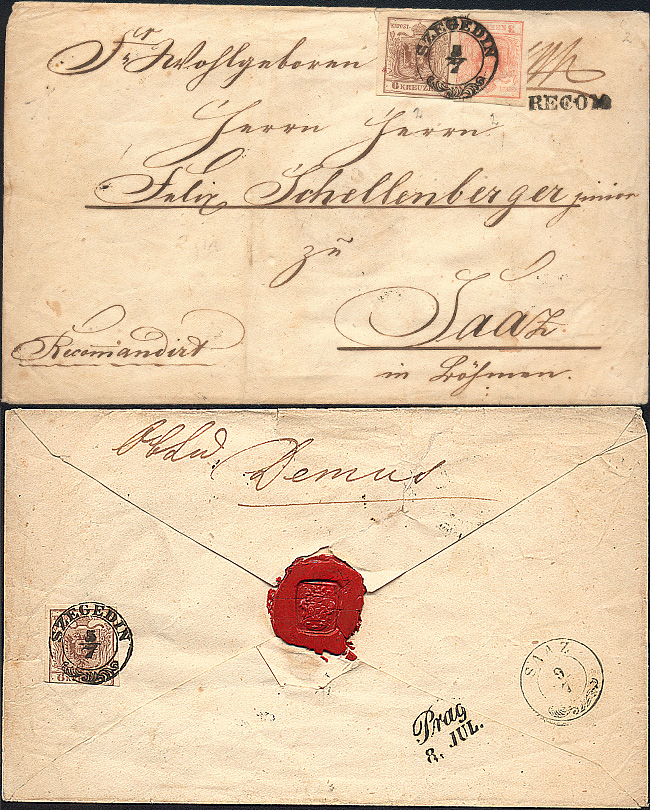 Sr Wohlgeboren
SZEGEDIN
5/7
6 KREUZER
RECOM
Herrn Herrn
Felix Schellenberger junior
zu
Saaz
Recomandirt
in Böhmen.
Demus
SZEGEDIN
5/7
SAAZ
9/7
Prag
8. JUL.